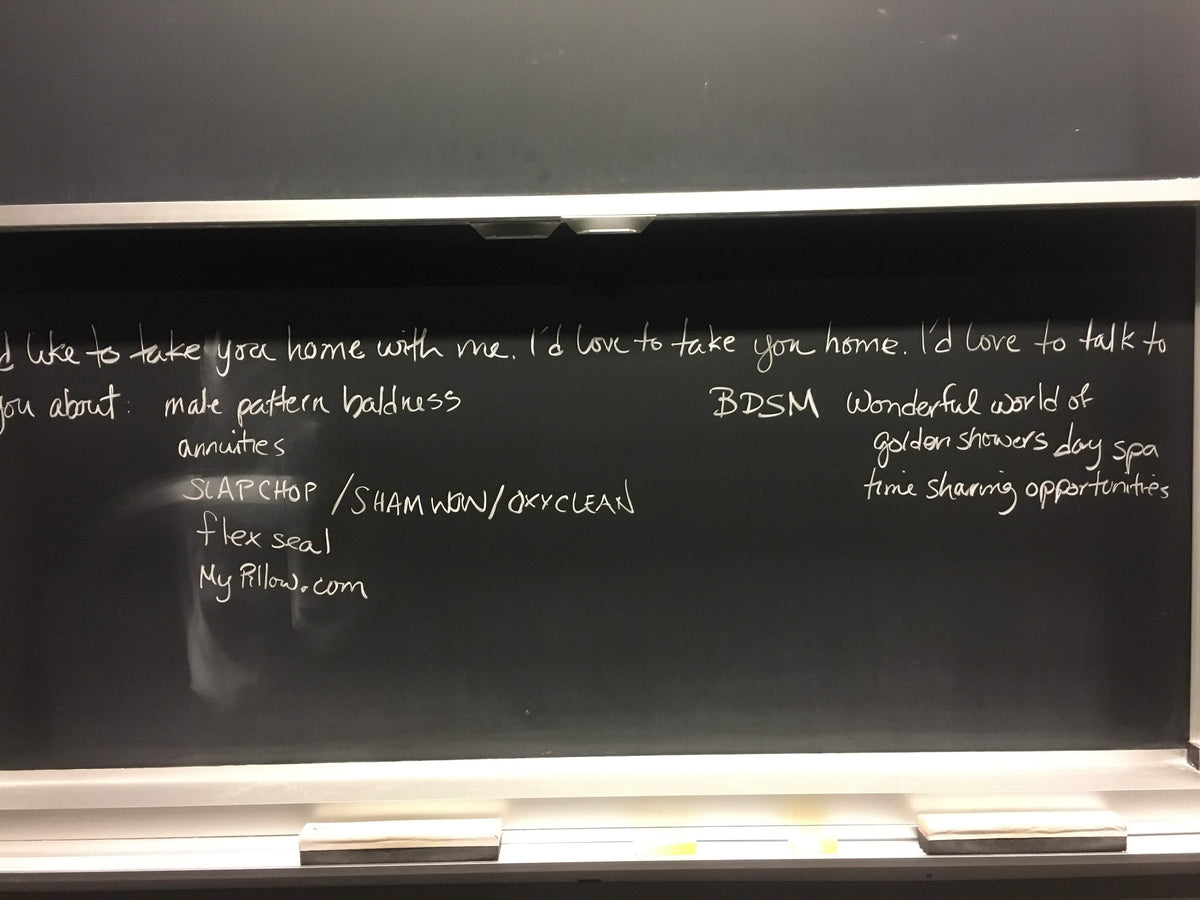 d like to take you home with me. I'd love to take you home. I'd love to talk to
you about: male pattern baldness BDSM Wonderful world of
annuities golden showers day spa
SLAPCHOP / SHAMWOW / OXYCLEAN time sharing opportunities
flex seal
My Pillow.com